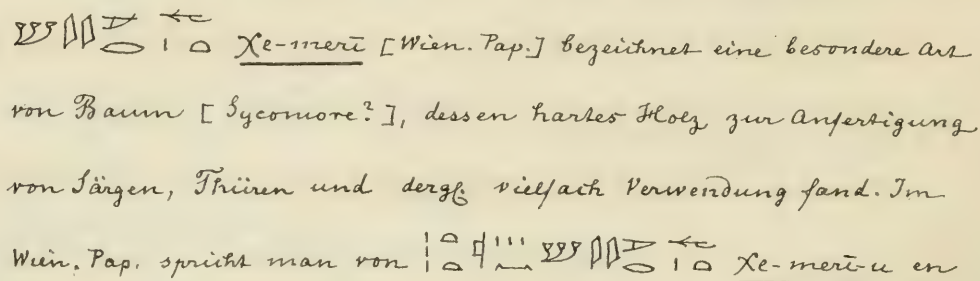 Xe-merī [Wien. Pap.] bezeichnet eine besondere Art
von Baum [Sycomore?], dessen hartes Holz zur Anfertigung
von Särgen, Thüren und dergl. vielfach Verwendung fand. Im
Wien. Pap. spricht man von Xe-merī-u en